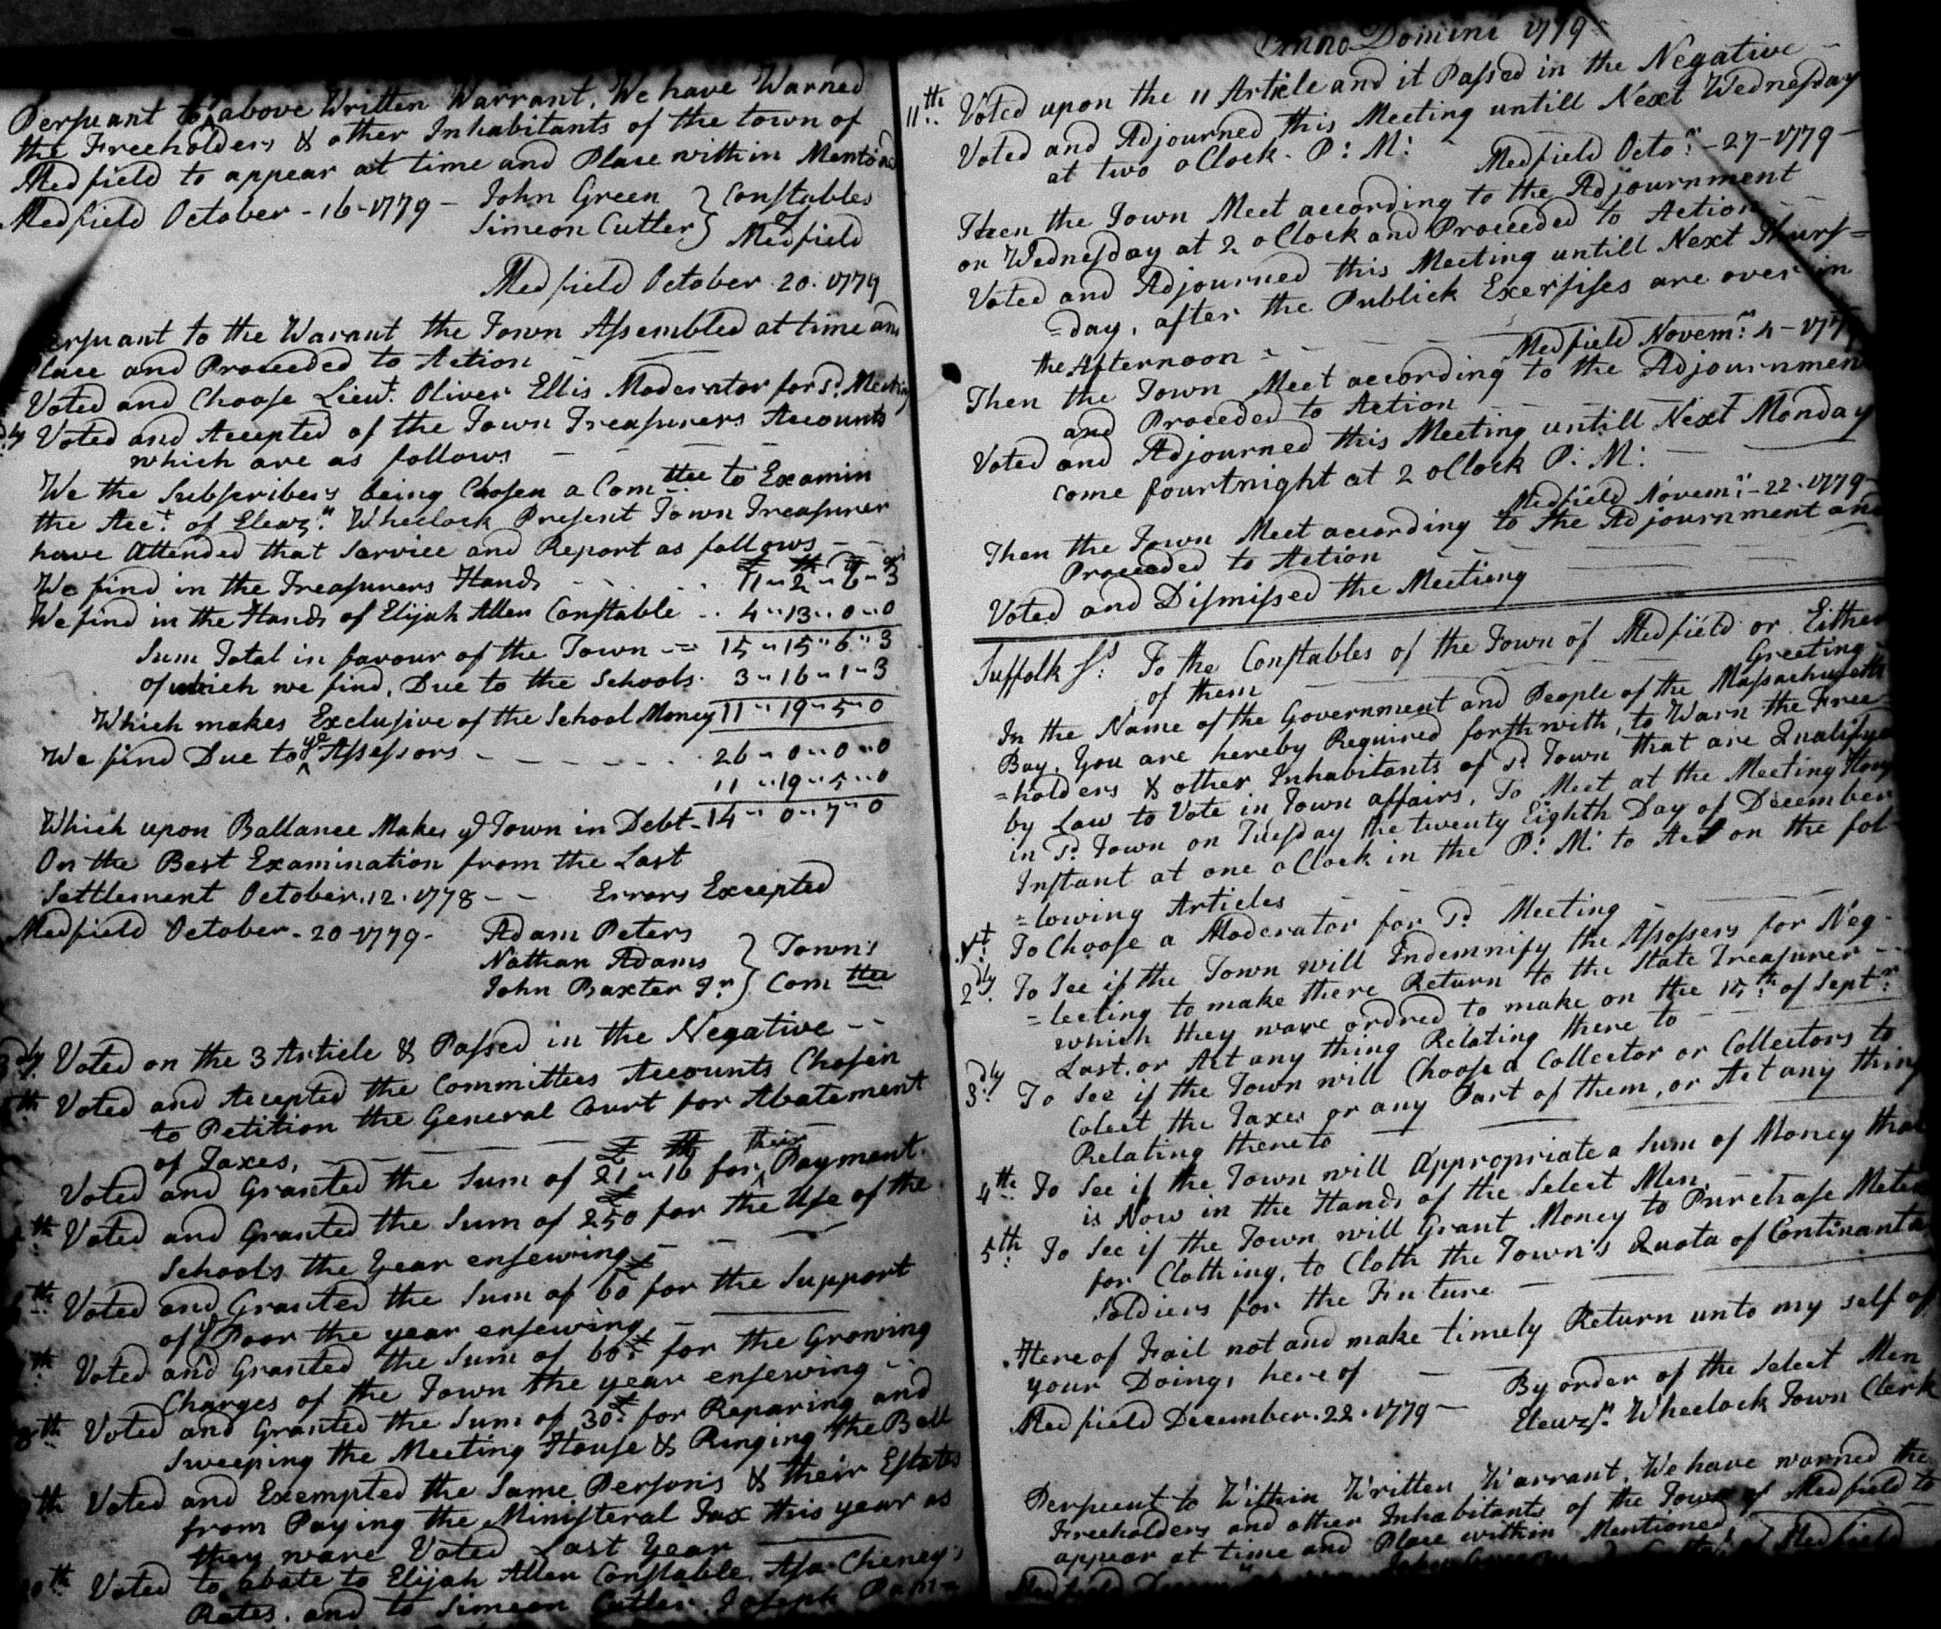 Persuant to above Written Warrant, We have Warned
the Freeholders & other Inhabitants of the town of
Medfield to appear at time and Place within Mentiond
Medfield October - 16 - 1779 - John Green } Constables
Simeon Cutler } of Medfield
Medfield October 20. 1779
ersuant to the Warant the Town Assembled at time and
Place and Proceeded to Action
Voted and Choose Lieut. Oliver Ellis Moderator for sd. Meeting
ly Voted and Accepted of the Town Treasurers Accounts
which are as follows
We the Subscribers being Chosen a Comttee to Examin
the Acct. of Eleazr. Wheelock Present Town Treasurer
have Attended that Service and Report as follows
We find in the Treasurers Hands 11 - 2 - 6 - 3
We find in the Hands of Elijah Allen Constable 4 - 13 - 0 - 0
Sum Total in favour of the Town 15 - 15 - 6 - 3
of which we find, Due to the Schools 3 - 16 - 1 - 3
Which makes Exclusive of the School Money 11 - 19 - 5 - 0
We find Due to ye Assessors 26 - 0 - 0 - 0
11 - 19 - 5 - 0
Which upon Ballance Makes ye Town in Debt 14 - 0 - 7 - 0
On the Best Examination from the Last
Settlement October. 12. 1778 - - Errors Excepted
Medfield October - 20 - 1779 - Adam Peters
Nathan Adams } Town's
John Baxter Jr } Comttee
3dly Voted on the 3 Article & Passed in the Negative
th Voted and Accepted the Committees Accounts Chosen
to Petition the General Court for Abatement
of Taxes,
Voted and Granted the Sum of 21 - 16 for their Payment.
th Voted and Granted the Sum of 250 for the Use of the
Schools the Year ensewing
th Voted and Granted the Sum of 60 for the Support
of ye Poor the year ensewing
th Voted and Granted the Sum of 66£ for the Growing
Charges of the Town the year ensewing
8th Voted and Granted the Sum of 30£ for Reparing and
Sweeping the Meeting House & Ringing the Bell
th Voted and Exempted the Same Person's & their Estates
from Paying the Ministeral Tax this year as
they ware Voted Last Year
10th Voted to abate to Elijah Allen Constable, Asa Cheney's
Rates. and to Simeon Cutler, Joseph
Anno Domini 1779
11th Voted upon the 11 Article and it Passed in the Negative
Voted and Adjourned this Meeting untill Next Wednesday
at two oClock P: M:
Medfield Octor. - 27 - 1779
Then the Town Meet according to the Adjournment
on Wednesday at 2 oClock and Proceeded to Action
Voted and Adjourned this Meeting untill Next Thurs=
=day, after the Publick Exersises are over in
the Afternoon
Medfield Novemr. 4 - 1779
Then the Town Meet according to the Adjournmen
and Proceded to Action
Voted and Adjourned this Meeting untill Next Monday
come fourtnight at 2 oClock P: M:
Medfield Novemr. - 22 - 1779
Then the Town Meet according to the Adjournment and
Proceeded to Action
Voted and Dismissed the Meetieng
Suffolk Ss. To the Constables of the Town of Medfield or Either
of them Greeting
In the Name of the Government and People of the Massachusetts
Bay, You are hereby Required forthwith, to Warn the Free
=holders & other Inhabitants of sd. Town that are Qualifyed
by Law to Vote in Town affairs, To Meet at the Meeting House
in sd. Town on Tuesday the twenty Eighth Day of December
Instant at one oClock in the P: M: to Act on the fol-
=lowing Articles
1st. To Choose a Moderator for sd. Meeting
2dly. To See if the Town will Indemnify the Assessers for Neg-
=lecting to make there Return to the State Treasurer
which they ware ordred to make on the 15th. of Septr.
Last. or Act any thing Relating there to
3dly To See if the Town will Choose a Collector or Collectors to
Colect the Taxes or any Part of them, or Act any thing
Relating thereto
4th To See if the Town will Appropriate a Sum of Money that
is Now in the Hands of the Select Men.
5th To See if the Town will Grant Money to Purchase Meter
for Clothing, to Cloth the Town's Quota of Continanta
Soldiers for the Futture
Hereof Fail not and make timely Return unto my self of
your Doings here of
By order of the Select Men
Medfield December. 22. 1779 - Eleazr. Wheelock Town Clerk
Persuent to Within Written Warrant, We have warned the
Freeholders and other Inhabitants of the Town of Medfield to
appear at time and Place within Mentioned
Medfield